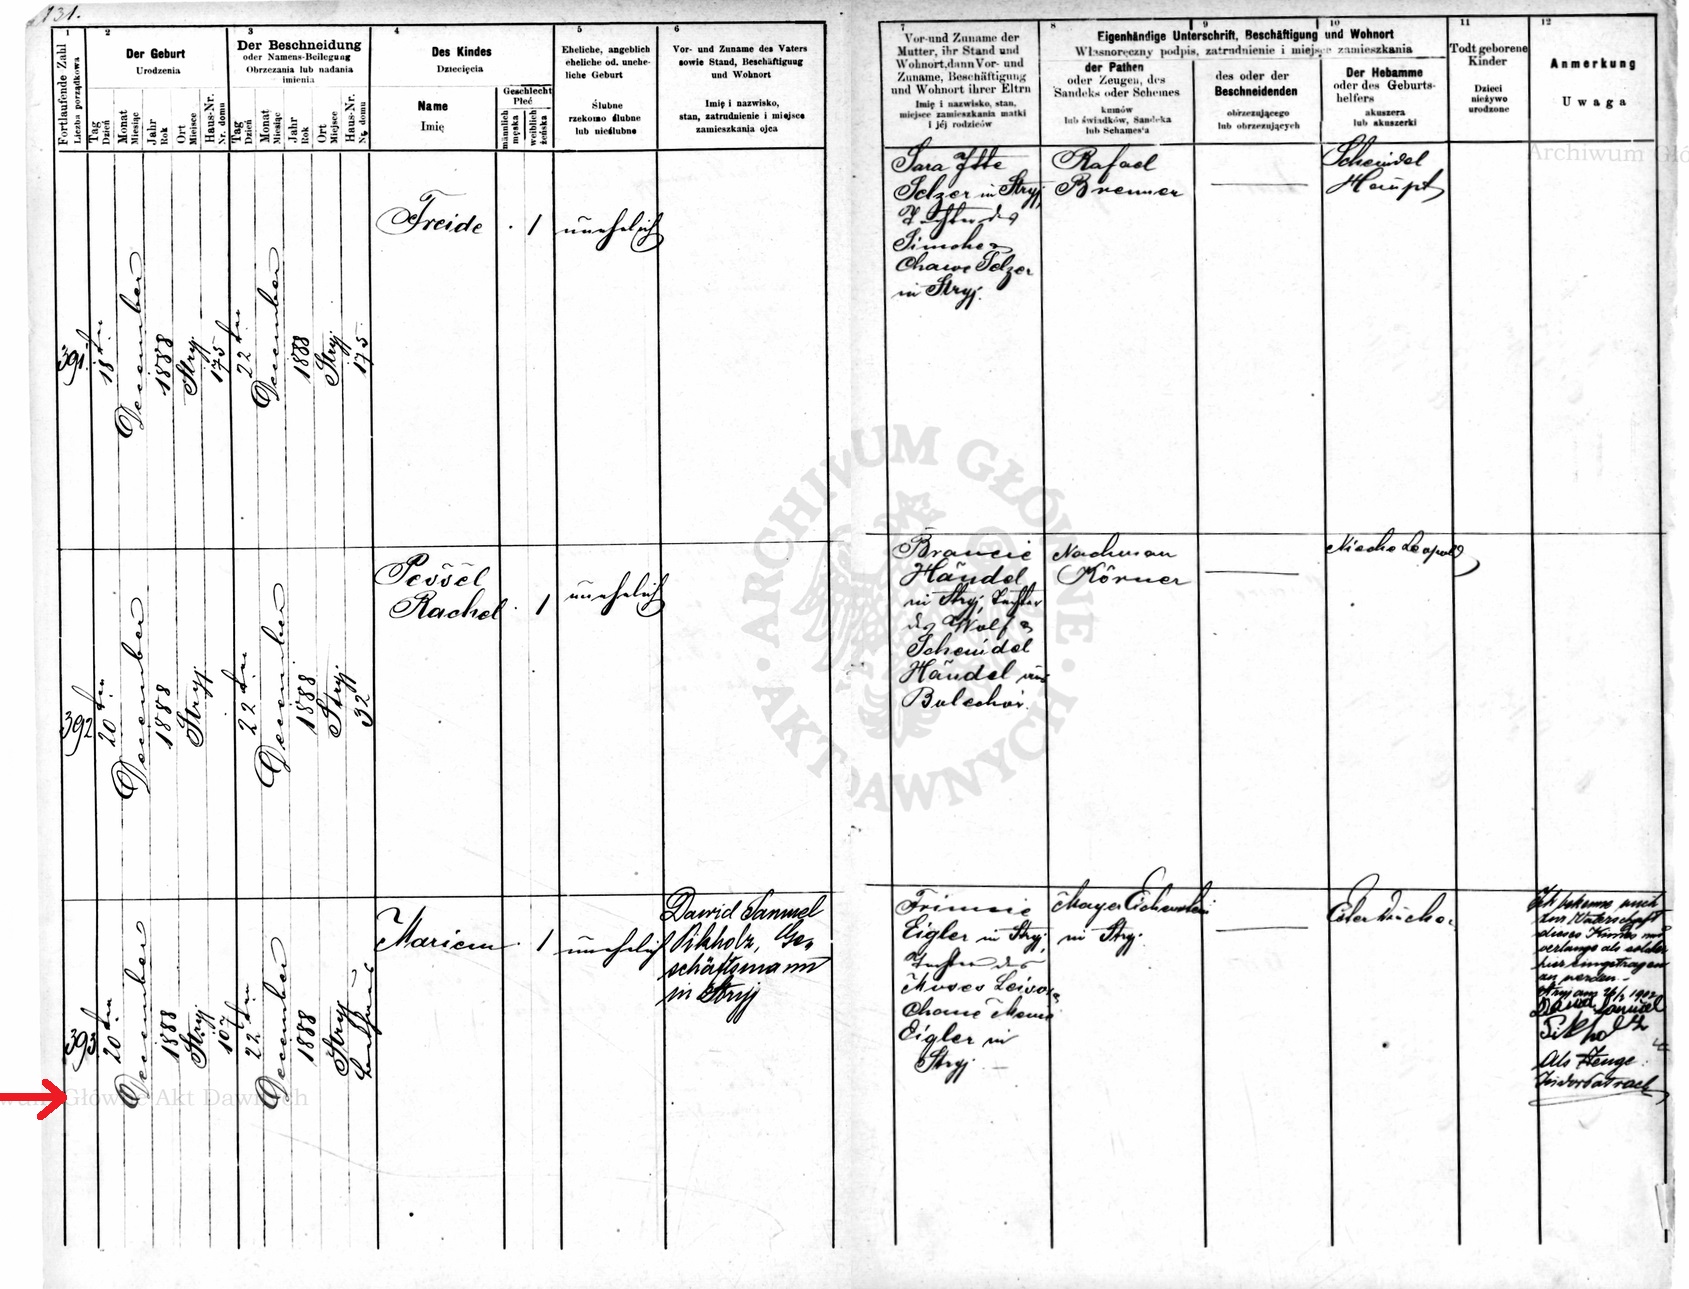 131.
1
2
3
4
5
6
7
8
9
10
11
12
Fortlaufende Zahl
Liczba porządkowa
Der Geburt
Urodzenia
Tag
Dzień
Monat
Miesiąc
Jahr
Rok
Ort
Miejsce
Haus-Nr.
Nr. domu
Der Beschneidung
oder Namens-Beilegung
Obrzezania lub nadania
imienia
Tag
Dzień
Monat
Miesiąc
Jahr
Rok
Ort
Miejsce
Haus-Nr.
Nr. domu
Des Kindes
Dziecięcia
Name
Imię
Geschlecht
Płeć
männlich
męska
weiblich
żeńska
Eheliche, angeblich
eheliche od. unehe-
liche Geburt
Ślubne
rzekomo ślubne
lub nieślubne
Vor- und Zuname des Vaters
sowie Stand, Beschäftigung
und Wohnort
Imię i nazwisko,
stan, zatrudnienie i miejsce
zamieszkania ojca
Vor-und Zuname der
Mutter, ihr Stand und
Wohnort,dann Vor- und
Zuname, Beschäftigung
und Wohnort ihrer Eltrn
Imię i nazwisko, stan,
miejsce zamieszkania matki
i jéj rodziców
Eigenhändige Unterschrift, Beschäftigung und Wohnort
Własnoręczny podpis, zatrudnienie i miejsce zamieszkania
der Pathen
oder Zeugen, des
Sandeks oder Schemes
kumów
lub świadków, Sandeka
lub Schames'a
des oder der
Beschneidenden
obrzezującego
lub obrzezujących
Der Hebamme
oder des Geburts-
helfers
akuszera
lub akuszerki
Todt geborene
Kinder
Dzieci
nieżywo
urodzone
Anmerkung
Uwaga
391.
18ten
December
1888
Stryj
175
22ten
December
1888
Stryj
175
Freide
1
unehelich
Sara Itte
Selzer in Stryj,
Tochter des
Simche &
Chawe Selzer
in Stryj.
Rafael
Brenner
Scheindel
Haupt
392
20ten
December
1888
Stryj
22ten
December
1888
Stryj
32
Pessel
Rachel
1
unehelich
Brancie
Händel
in Stryj, Tochter
des Wolf &
Scheindel
Händel aus
Bolechów.
Nachman
Körner
Leopold
393
20ten
December
1888
Stryj
107
22ten
December
1888
Stryj
Mariem
1
unehelich
Dawid Samuel
Pikholz, Ge-
schäftsmann
in Stryj
Frimcie
Eigler in Stryj,
Tochter des
Moses Leib &
Chane
Eigler in
Stryj
Mayer
in Stryj.
Ester
Ich bekenne mich
zur Vaterschaft
dieses Kindes und
verlange als solcher
hier eingetragen
zu werden.
Stryj am 1902
Dawid Samuel
Pikholz
Als Zeuge:
ARCHIWUM GŁÓWNE
AKT DAWNYCH
Archiwum Głó
wum Główne Akt Dawnych